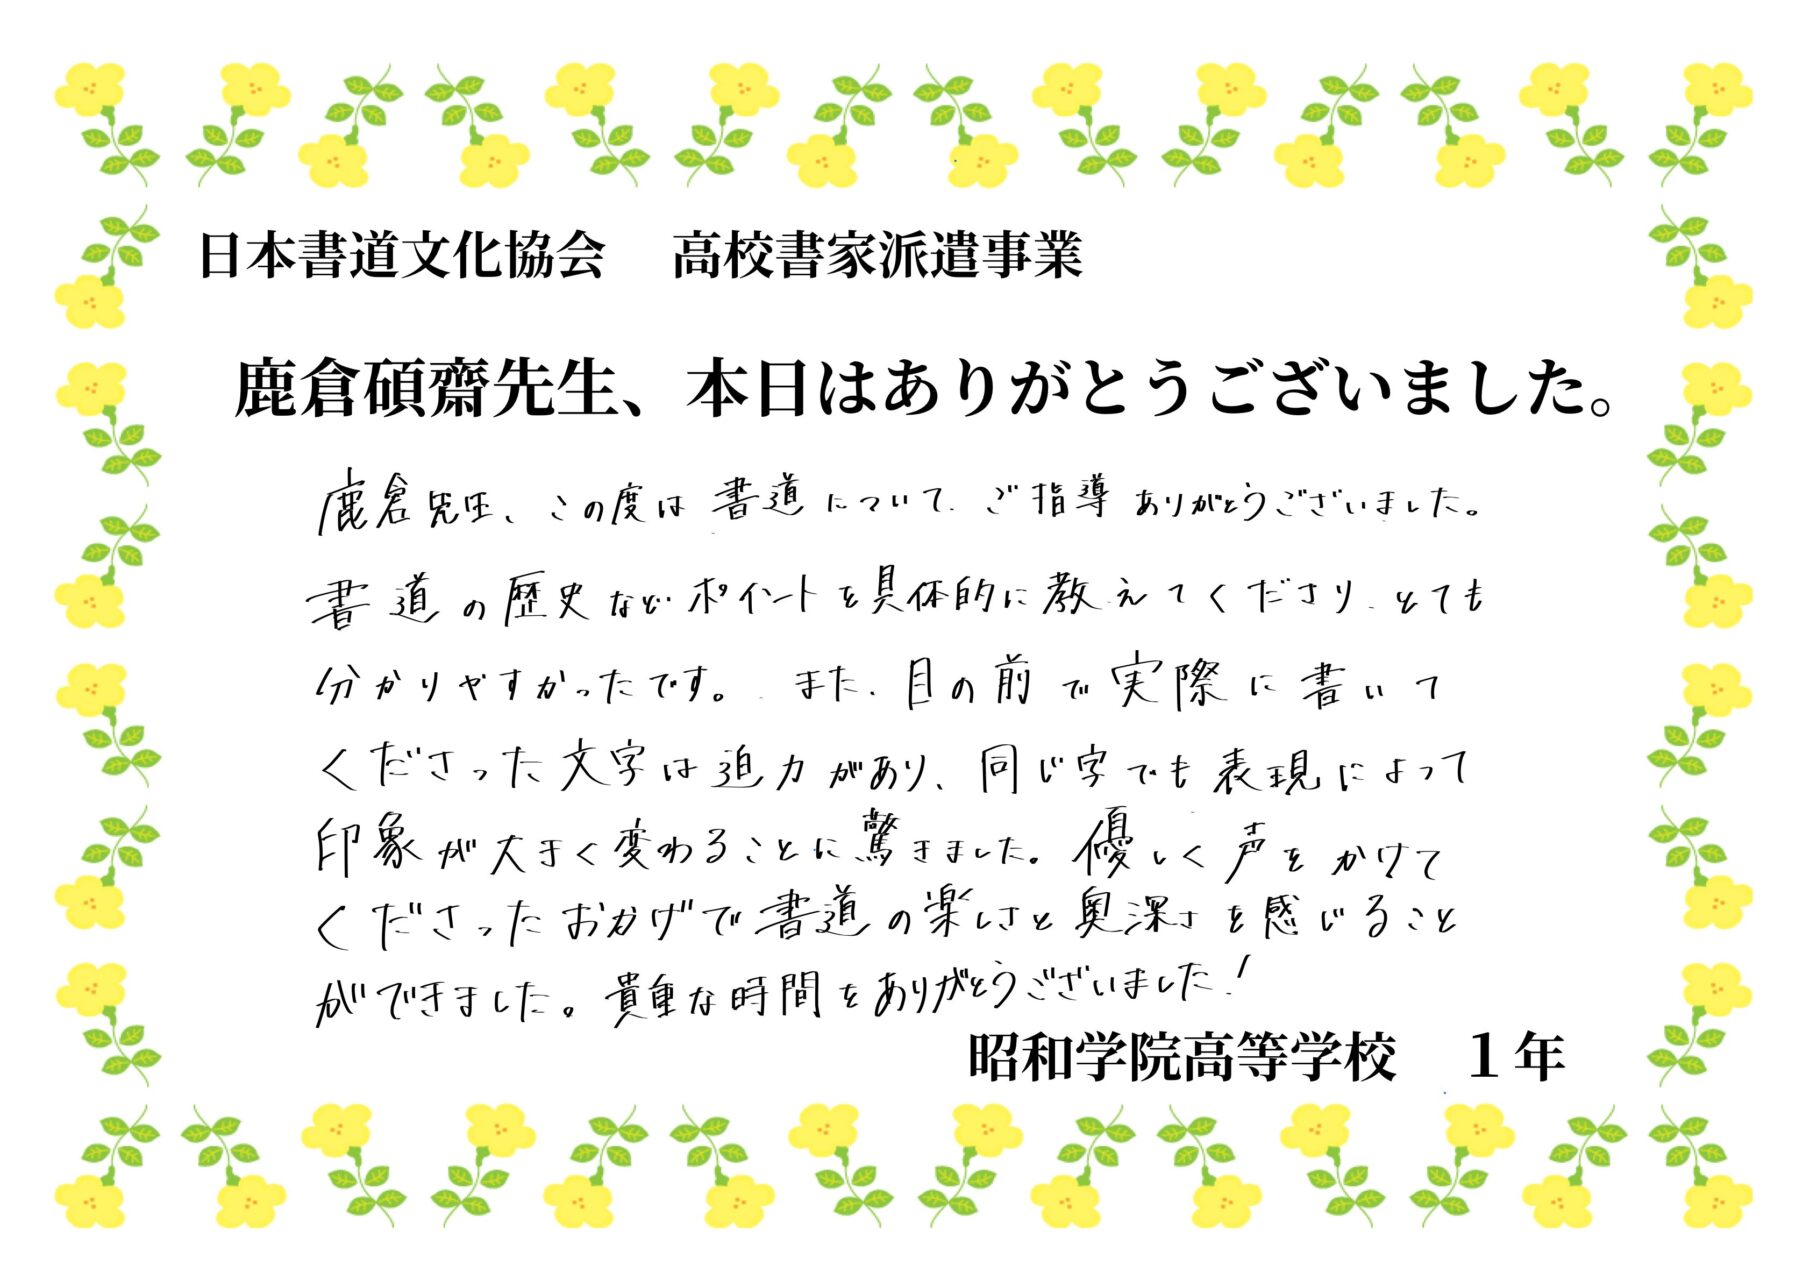 日本書道文化協会　高校書家派遣事業
鹿倉碩齋先生、本日はありがとうございました。
鹿倉先生、この度は書道について、ご指導ありがとうございました。
書道の歴史などポイントを具体的に教えてくださり、とても
分かりやすかったです。また、目の前で実際に書いて
くださった文字は迫力があり、同じ字でも表現によって
印象が大きく変わることに驚きました。優しく声をかけて
くださったおかげで書道の楽しさと奥深さを感じること
ができました。貴重な時間をありがとうございました!
昭和学院高等学校　１年